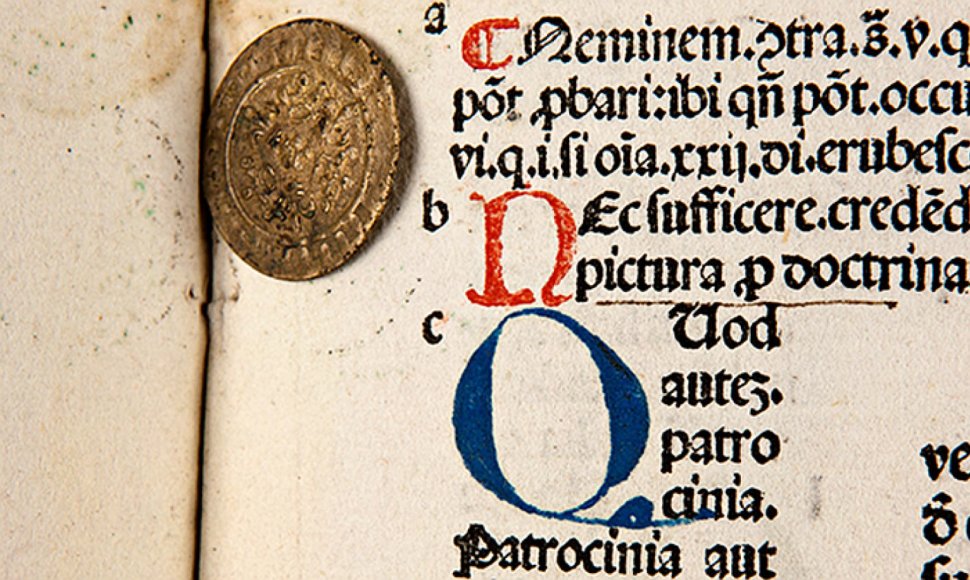 a
¶ Neminem.ↄtra.s̃.v.q
põt ꝓbari:ibi qñ põt.occu
vi.q.i.si oĩa.xxij.di.erubesc
b NEc sufficere.credẽd
pictura ꝓ doctrina
c QUod
auteꝫ.
patro
cinia.
Patrocinia aut
ve